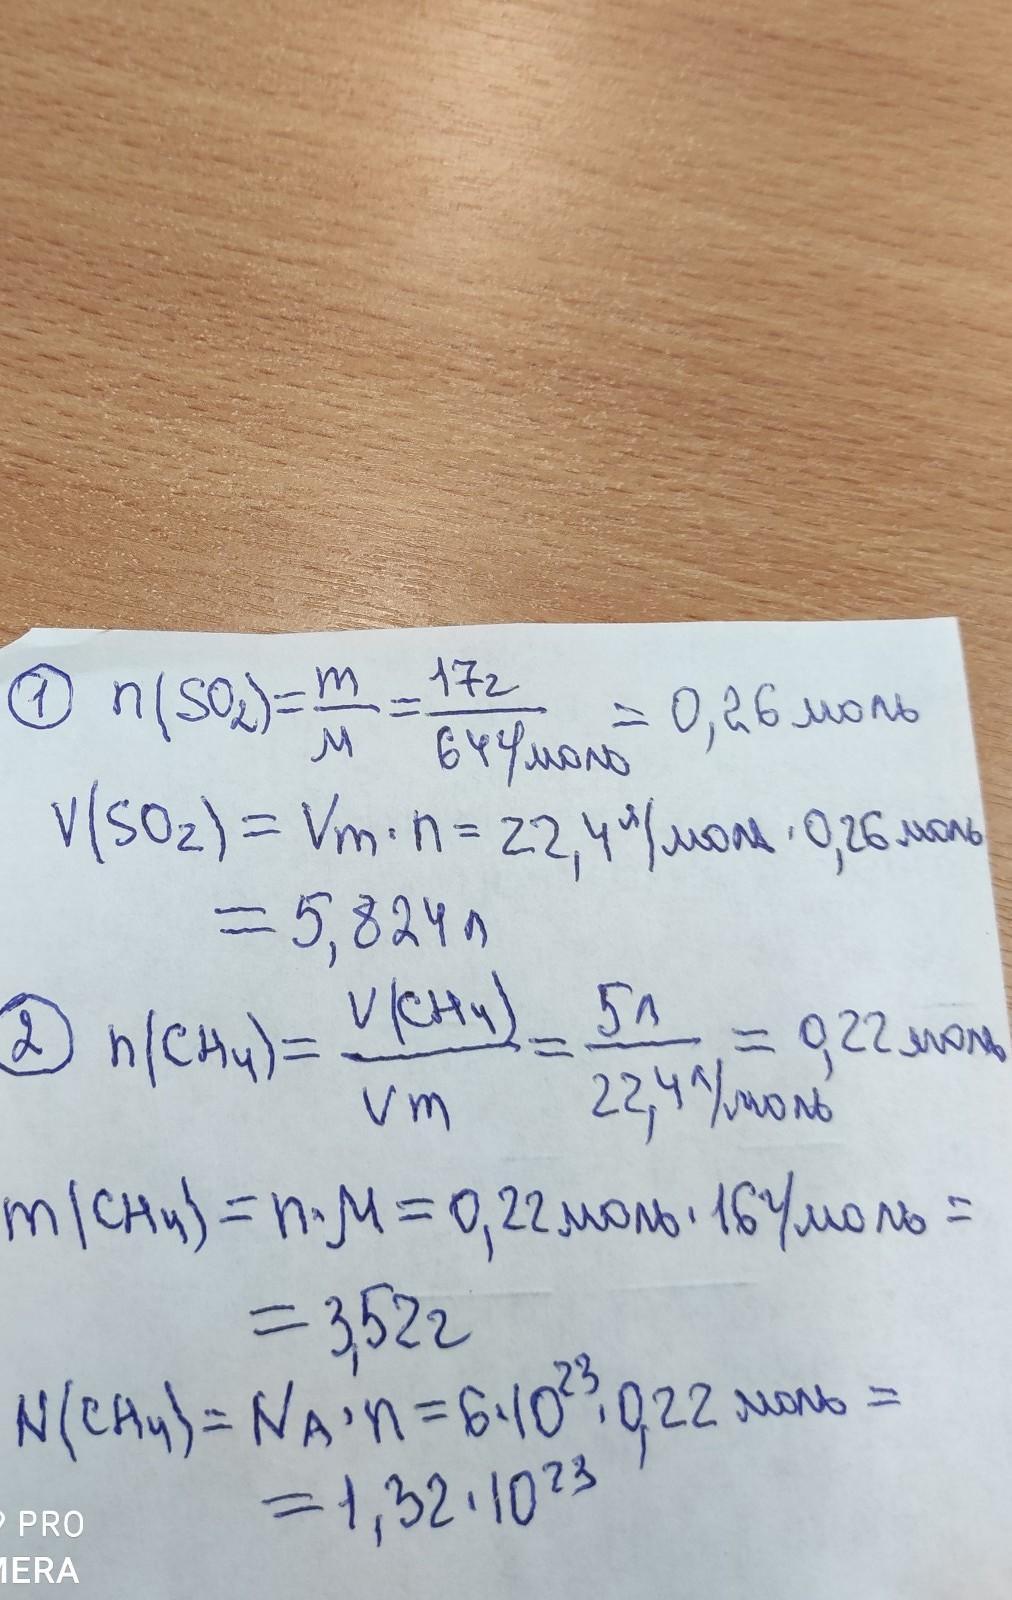 ① n(SO₂) = m/M = 17г/64 г/моль = 0,26 моль
V(SO₂) = Vm · n = 22,4 л/моль · 0,26 моль
= 5,824 л
② n(CH₄) = V(CH₄)/Vm = 5л/22,4 л/моль = 0,22 моль
m(CH₄) = n · M = 0,22 моль · 16 г/моль =
= 3,52 г
N(CH₄) = NA · n = 6 · 10²³ · 0,22 моль =
= 1,32 · 10²³
9 PRO
MERA